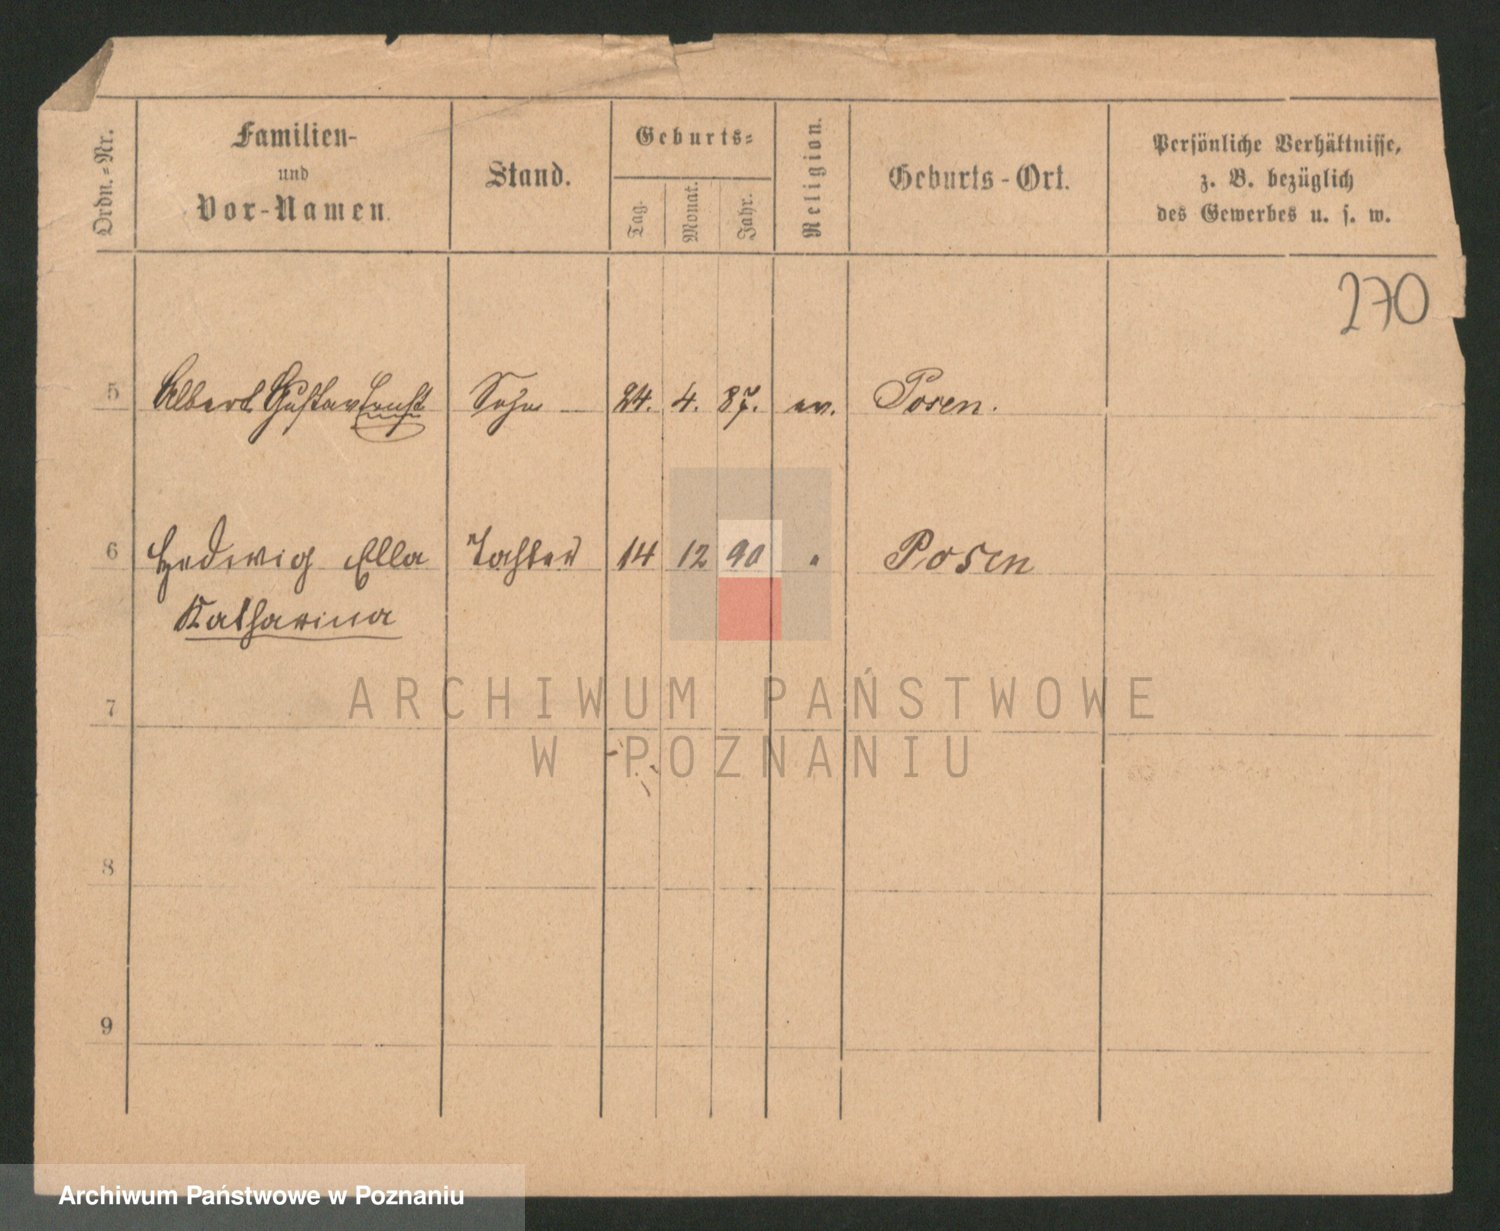 Ordn.-Nr.
Familien-
und
Vor-Namen.
Stand.
Geburts-
Tag.
Monat.
Jahr.
Religion.
Geburts-Ort.
Persönliche Verhältnisse,
z. B. bezüglich
des Gewerbes u. s. w.
270
5 Albert Gustav Ernst Sohn 24. 4. 87. ev. Posen.
6 Hedwig Ella Tochter 14 12 90 " Posen
Katharina
7
8
9
ARCHIWUM PAŃSTWOWE
W POZNANIU
Archiwum Państwowe w Poznaniu